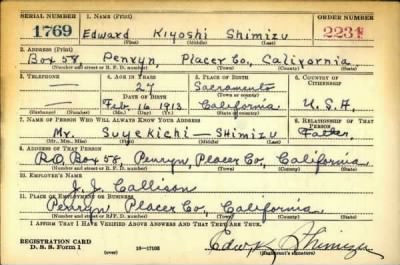 SERIAL NUMBER 1. NAME (Print) ORDER NUMBER
1769 Edward Kiyoshi Shimizu 2231
(First) (Middle) (Last)
2. ADDRESS (Print)
Box 58, Penryn, Placer Co., California
(Number and street or R. F. D. number) (Town) (County) (State)
3. TELEPHONE 4. AGE IN YEARS 5. PLACE OF BIRTH 6. COUNTRY OF CITIZENSHIP
— 27 Sacramento
DATE OF BIRTH (Town or county)
— Feb. 16 1913 California U.S.A.
(Exchange) (Number) (Mo.) (Day) (Yr.) (State or country)
7. NAME OF PERSON WHO WILL ALWAYS KNOW YOUR ADDRESS 8. RELATIONSHIP OF THAT PERSON
Mr. Suyekichi — Shimizu Father
(Mr., Mrs., Miss) (First) (Middle) (Last)
9. ADDRESS OF THAT PERSON
P.O. Box 58, Penryn Placer Co., California
(Number and street or R. F. D. number) (Town) (County) (State)
10. EMPLOYER'S NAME
J. J. Callison
11. PLACE OF EMPLOYMENT OR BUSINESS
Penryn Placer Co., California
(Number and street or R. F. D. number) (Town) (County) (State)
I AFFIRM THAT I HAVE VERIFIED ABOVE ANSWERS AND THAT THEY ARE TRUE.
REGISTRATION CARD
D. S. S. FORM 1 (over) 16—17105 Edw. K. Shimizu
(Registrant's signature)